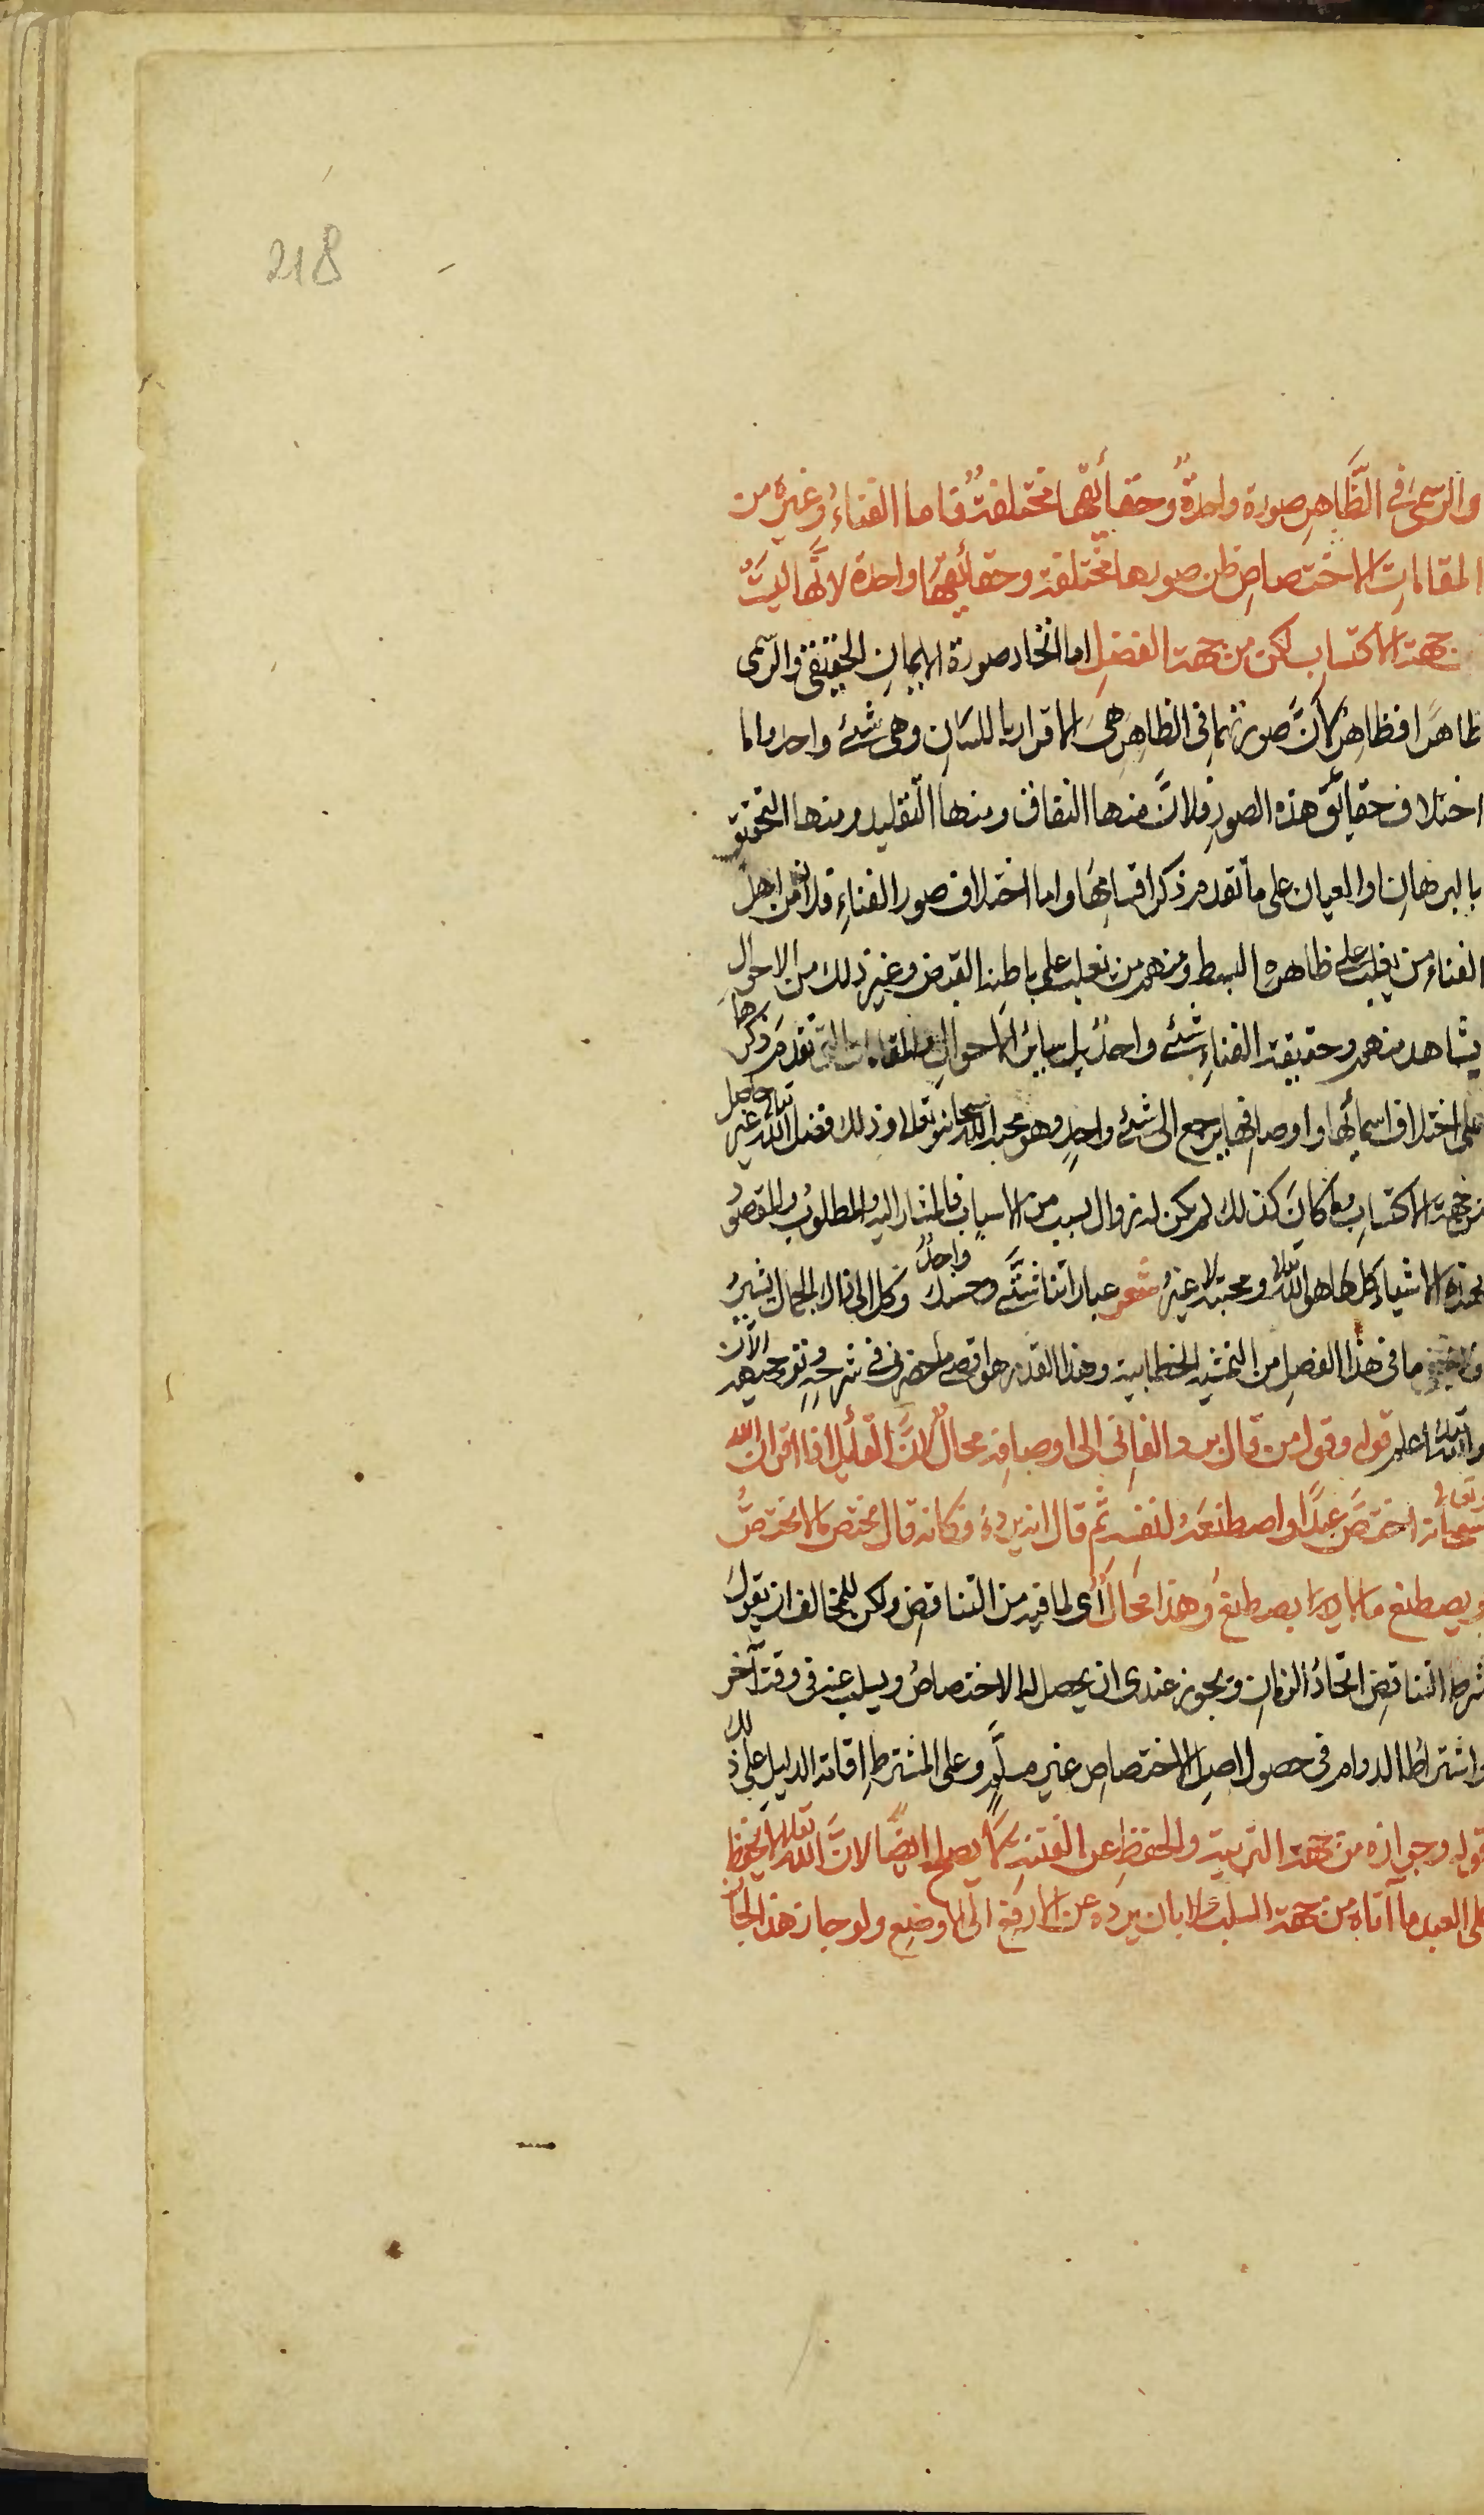 218
والرسمى فى الظَّاهِرِ صورة واحدةٌ وحقائقها مختلفةٌ فاما الفناءُ وغيرُه من
المقاماتِ الاختصاصِ فان صورها مختلفة وحقائقهَا واحدة لانَّها ليستْ
من جهة الاكتسابِ لكن من جهة الفضلِ اما اتحاد صورة الايمانِ الحقيقى والرسمى
ظاهرا فظاهر لانَّ صورتهما فى الظاهِرِ هى الاقرار باللسانِ وهى شئ واحد واما
اختلاف حقائق هذه الصورِ فلانَّ منها النفاق ومنها التقليد ومنها التحقيق
بالبرهانِ او العيان على ما تقدم ذكر اقسامِهَا واما اختلاف صور الفناءِ فلان من اهل
الفناء من يغلب على ظاهره البسط ومنهم من يغلب على باطنه القبض وغير ذلك من الاحوالِ
يشاهد منهم وحقيقة الفناءِ شئ واحدٌ بل سائر الاحوالِ والمقامات التى تقدم ذكرها
على اختلاف اسمائها واوصافِها يرجع الى شئ واحدٍ وهو محبة الله سبحانه وتعالى وذلك فضل الله تعالى غير حاصل
من جهة الاكتسابِ وما كان كذلك لم يكن له زوال بسبب من الاسباب فالمشار اليه والمطلوبُ والمقصودُ
بهذه الاشياء كلها هو الله تعالى ومحبته لا غيرُ شعر عباراتنا شتَّى وحسنك واحدٌ وكل الى ذاك الجمال يشيرُ
ما فى هذا الفصلِ من الخطابية وهذا القدر هو اقصى ما حضرنى فى شرحِهِ وتوجيهه الآن
والله تعالى اعلم قوله وقول من قال يرد الفانى الى اوصافه محالٌ لانَّ القائل اذا اقر ان الله
سبحانه وتعالى اختصَّ عبدًا واصطنعَهُ لنفسه ثم قال انه يردهُ فكانه قال يختص ما لا يختصُّ
ويصطنع ما لا يصطنع وهذا محالٌ أى لما فيه من التناقضِ ولكن للمخالف ان يقول
شرط التناقضِ اتحادُ الزمانِ ويجوز عندى ان يحصل له الاختصاصُ ويسلب عنه فى وقت آخر
واشتراطُ الدوام فى حصول اصل الاختصاص غير مسلَّمٍ وعلى المشترطِ اقامة الدليلِ على ذلك
قوله وجوازه من جهة التربية والحفظِ عن الفتنةِ لا يصلح ايضًا لانَّ الله تعالى لا يحفظ
على العبد ما آتاه من جهة السلب ولا بان يرده عن الارفع الى الاوضع ولو جاز هذا لجاز